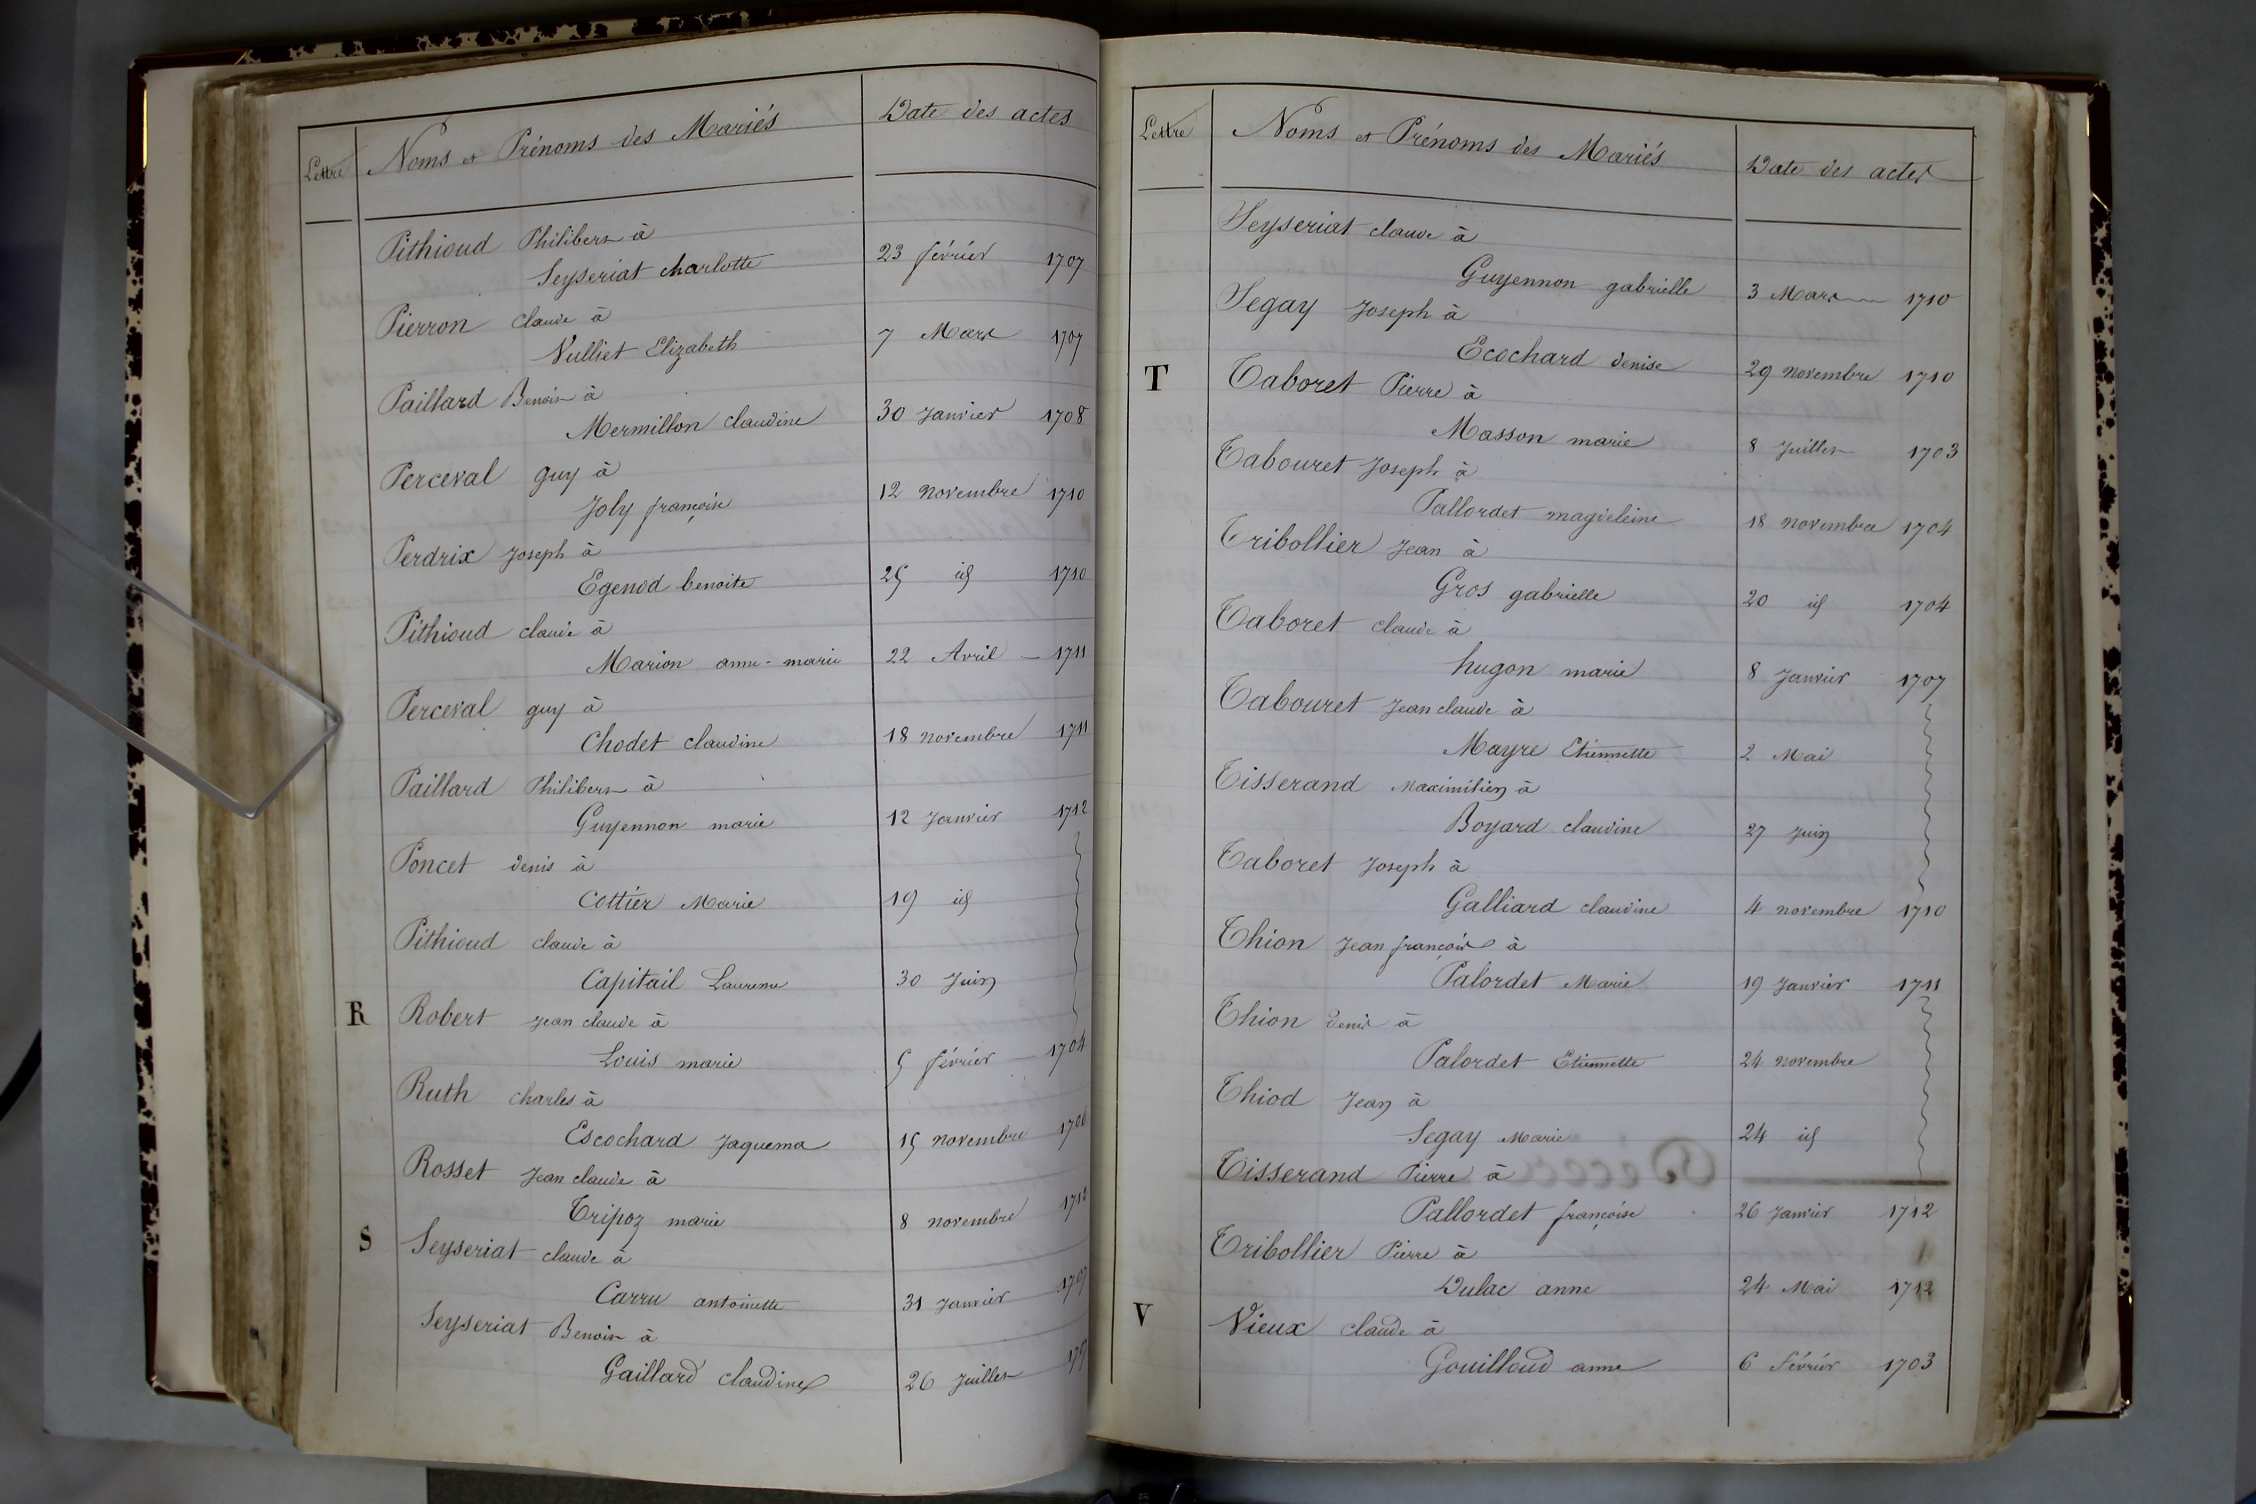 Lettre Noms et Prénoms des Mariés Date des actes
Pithioud Philibert à
Seyseriat charlotte 23 février 1707
Pierron claude à
Vulliet Elizabeth 7 Mars 1707
Paillard Benoit à
Mermillon claudine 30 Janvier 1708
Perceval guy à
Joly françoise 12 novembre 1710
Perdrix Joseph à
Egenod benoite 25 id 1710
Pithioud claude à
Marion anne-marie 22 Avril 1711
Perceval guy à
Chodet claudine 18 novembre 1711
Paillard Philibert à
Guyennon marie 12 Janvier 1712
Poncet denis à
Cottier Marie 19 id
Pithioud claude à
Capitail Laurence 30 Juin
R Robert Jean claude à
Louis marie 5 février 1704
Ruth charles à
Escochard Jaquema 15 novembre 1706
Rosset Jean claude à
Tripoz marie 8 novembre 1712
S Seyseriat claude à
Carru antoinette 31 Janvier 1707
Seyseriat Benoit à
Gaillard claudine 26 Juillet
Lettre Noms et Prénoms des Mariés Date des actes
Seyseriat claude à
Guyennon gabrielle 3 Mars 1710
Segay Joseph à
Ecochard denise 29 novembre 1710
T Taboret Pierre à
Masson marie 8 Juillet 1703
Tabouret Joseph à
Pallordet magdeleine 18 novembre 1704
Tribollier Jean à
Gros gabrielle 20 id 1704
Taboret claude à
hugon marie 8 Janvier 1707
Tabouret Jean claude à
Mayre Etiennette 2 Mai
Tisserand Maximilien à
Boyard claudine 27 Juin
Taboret Joseph à
Galliard claudine 4 novembre 1710
Thion Jean françois à
Palordet Marie 19 Janvier 1711
Thion denis à
Palordet Etiennette 24 novembre
Thiod Jean à
Segay Marie 24 id
Tisserand Pierre à
Pallordet françoise 26 Janvier 1712
Tribollier Pierre à
Dulac anne 24 Mai 1712
V Vieux claude à
Gouilloud anne 6 février 1703